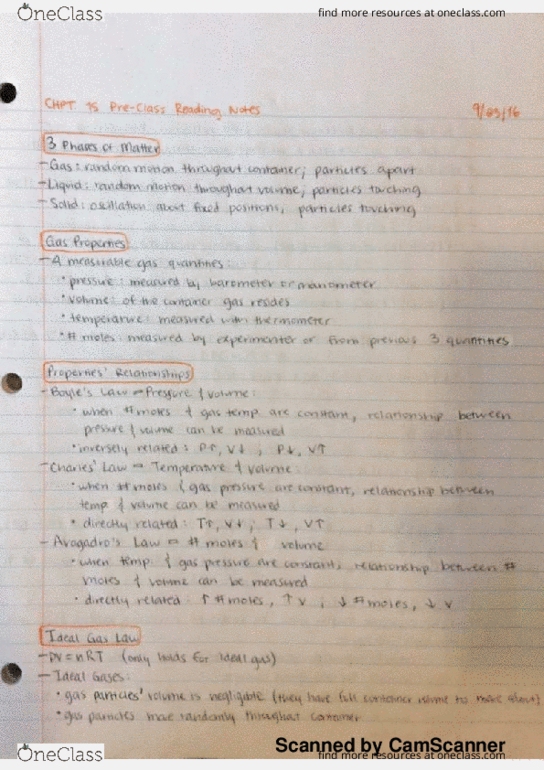 OneClass
find more resources at oneclass.com
CHPT 15 Pre-Class Reading Notes
9/05/16
3 Phases of Matter
- Gas: random motion throughout container; particles apart
- Liquid: random motion throughout volume; particles touching
- Solid: oscillation about fixed positions; particles touching
Gas Properties
- 4 measurable gas quantities:
• pressure: measured by barometer or manometer
• volume: of the container gas resides
• temperature: measured with thermometer
• # moles: measured by experimenter or from previous 3 quantities
Properties' Relationships
- Boyle's Law = Pressure & volume:
• when # moles & gas temp are constant, relationship between
pressure & volume can be measured
• inversely related: P↑, V↓ ; P↓, V↑
- Charles' Law = Temperature & volume:
• when # moles & gas pressure are constant, relationship between
temp & volume can be measured
• directly related: T↑, V↓ ; T↓, V↑
- Avogadro's Law = # moles & volume
• when temp & gas pressure are constant, relationship between #
moles & volume can be measured
• directly related: ↑ # moles, ↑ V ; ↓ # moles, ↓ V
Ideal Gas Law
- PV = nRT (only holds for ideal gas)
- Ideal Gases:
• gas particles' volume is negligible (they have full container volume to move about)
• gas particles move randomly throughout container
Scanned by CamScanner
OneClass
find more resources at oneclass.com